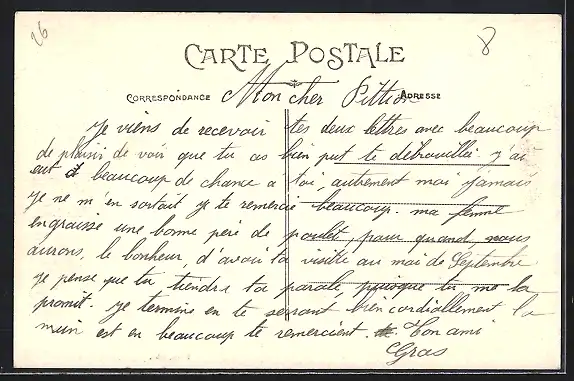 26
8
CARTE POSTALE
CORRESPONDANCE
ADRESSE
Mon cher Pittion
Je viens de recevoir tes deux lettres avec beaucoup
de plaisir de voir que tu as bien put te débrouillé j'ai
eut beaucoup de chance a toi, autrement moi jamais
je ne m en sortait je te remercie beaucoup. ma femme
engraisse une bonne père de poulet, pour quand nous
aurons, le bonheur, d'avoir ta visite au mois de Septembre
je pense que tu tiendra ta parole, puisque tu me la
promit. Je termine en te serrant bien cordiallement la
main et en beaucoup te remercient Ton ami
Gras